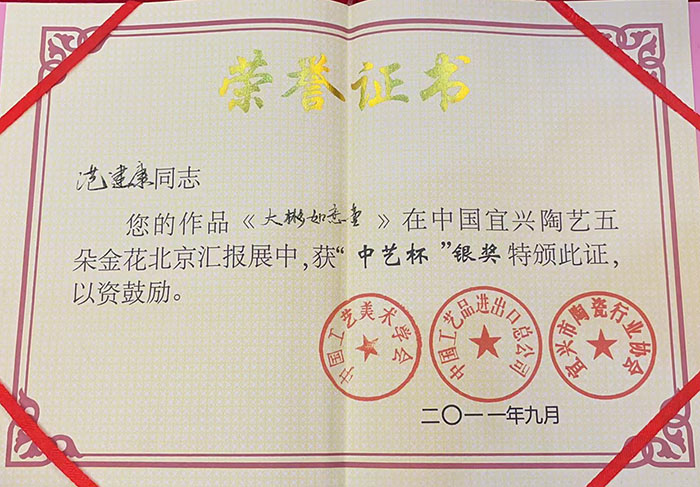 荣誉证书
范建康同志
您的作品《大彬如意壶》在中国宜兴陶艺五
朵金花北京汇报展中，获“中艺杯”银奖特颁此证，
以资鼓励。
中国工艺美术学会
中国工艺品进出口总公司
宜兴市陶瓷行业协会
二〇一一年九月